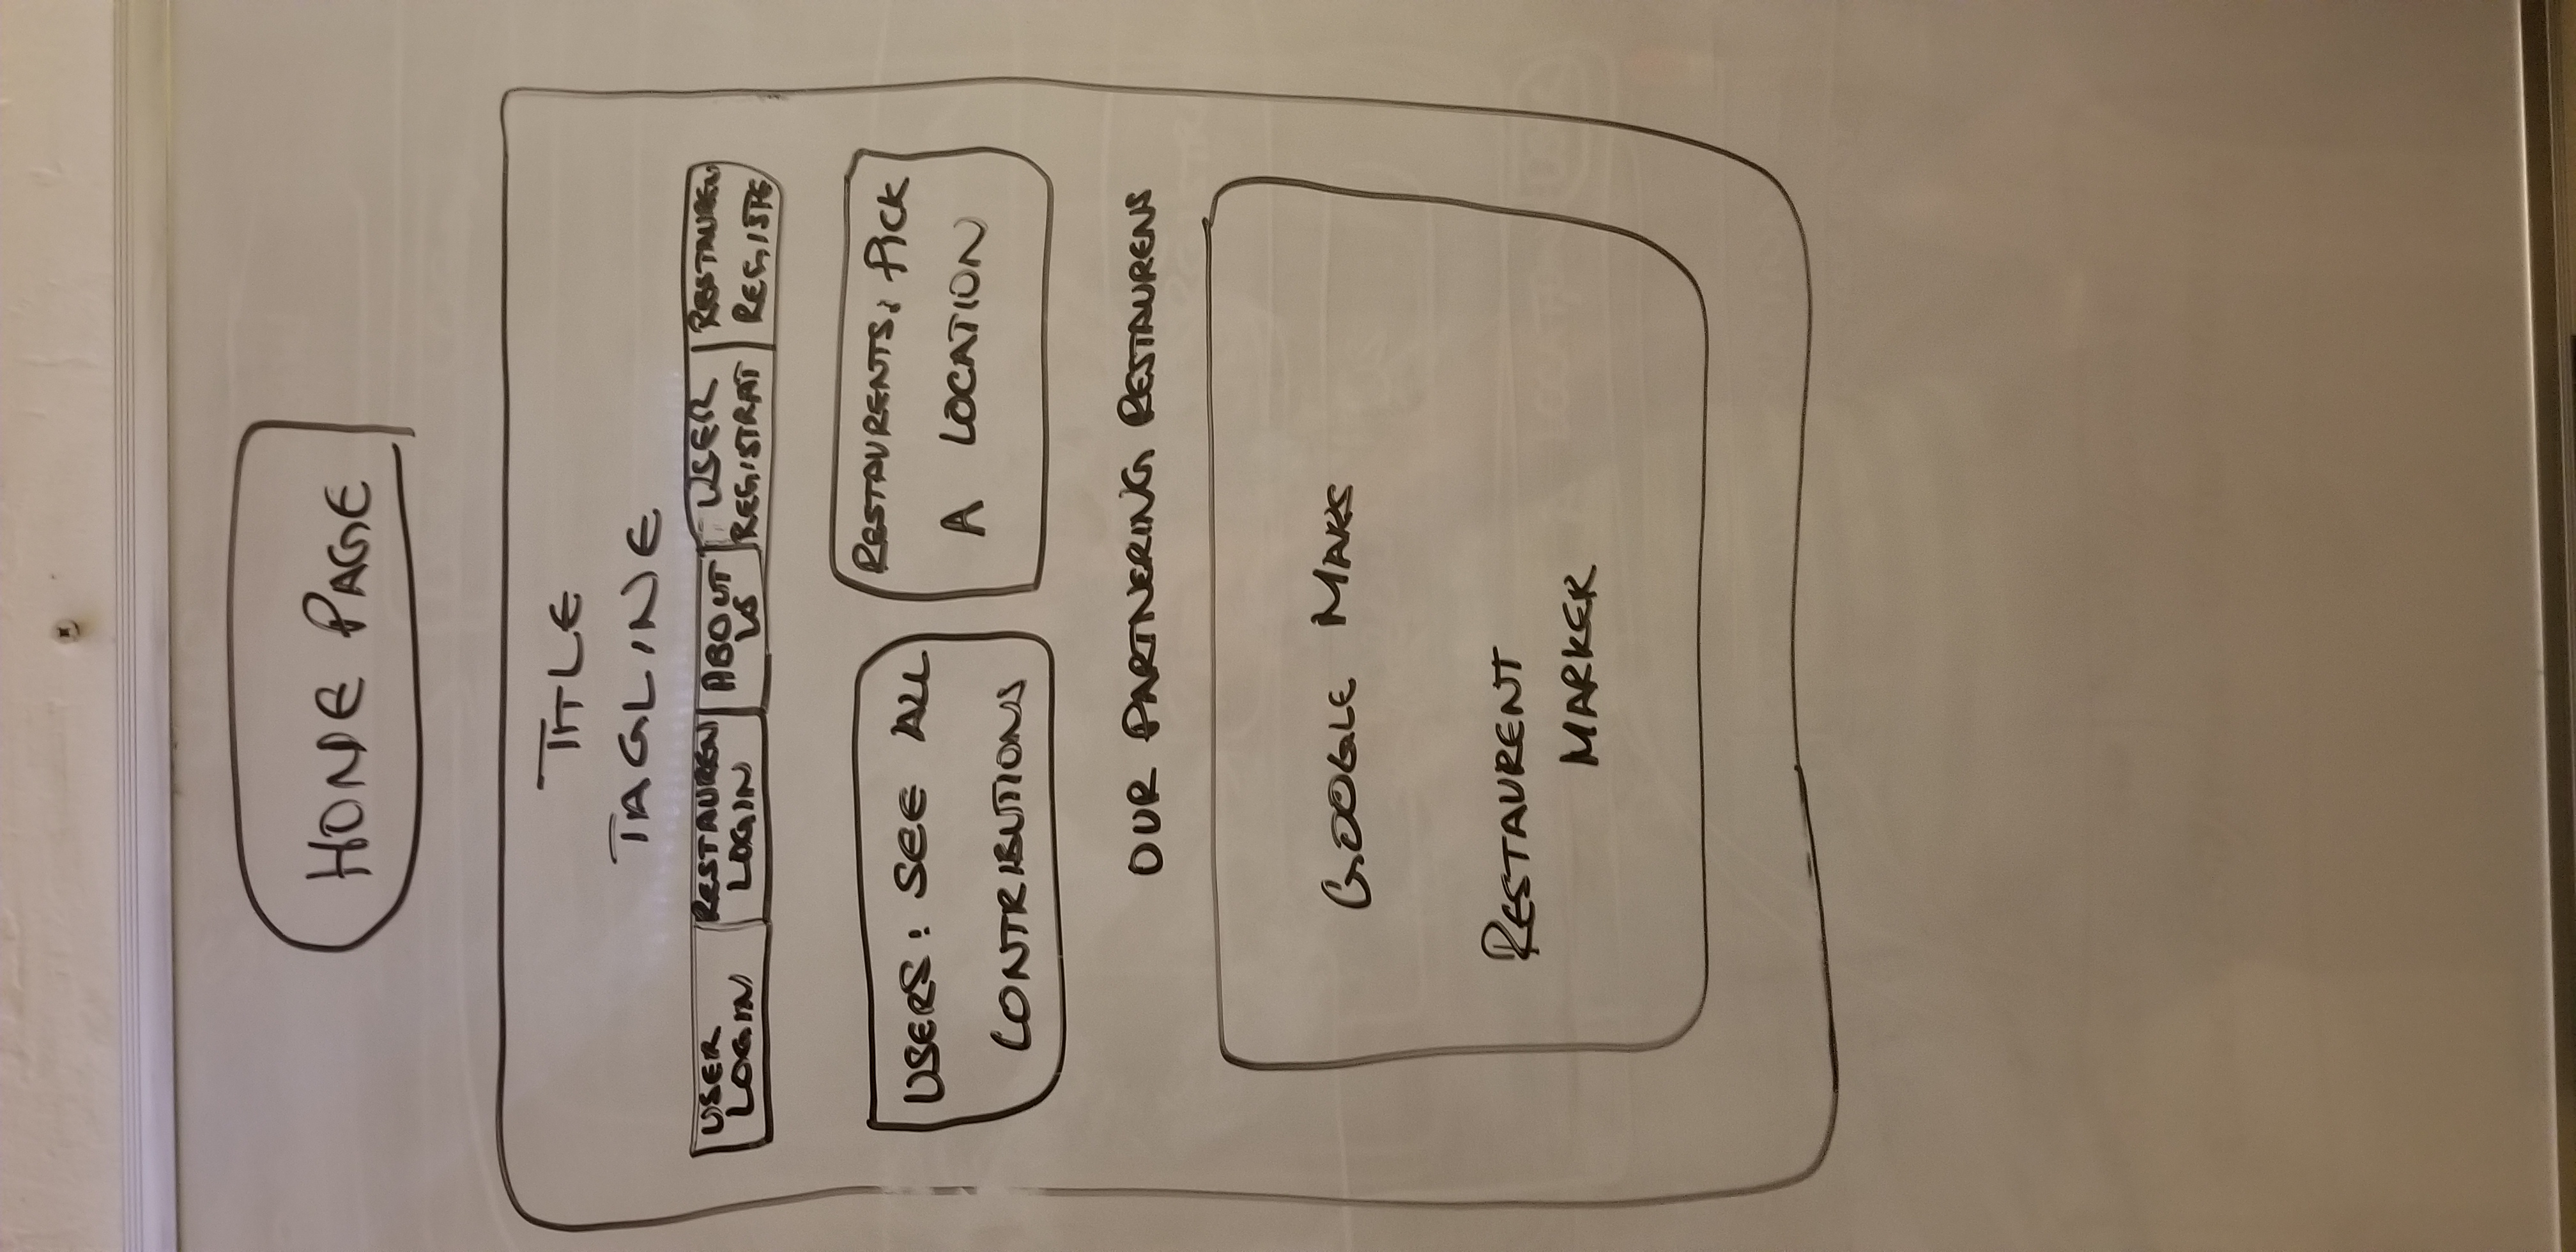 HOME PAGE
TITLE
TAGLINE
USER LOGIN
RESTAUREN LOGIN
ABOUT US
USER REGISTRAT
RESTAUREN REGISTE
USERS: SEE ALL
CONTRIBUTIONS
RESTAURENTS: PICK
A LOCATION
OUR PARTNERING RESTAURENS
GOOGLE MAPS
RESTAURENT
MARKER